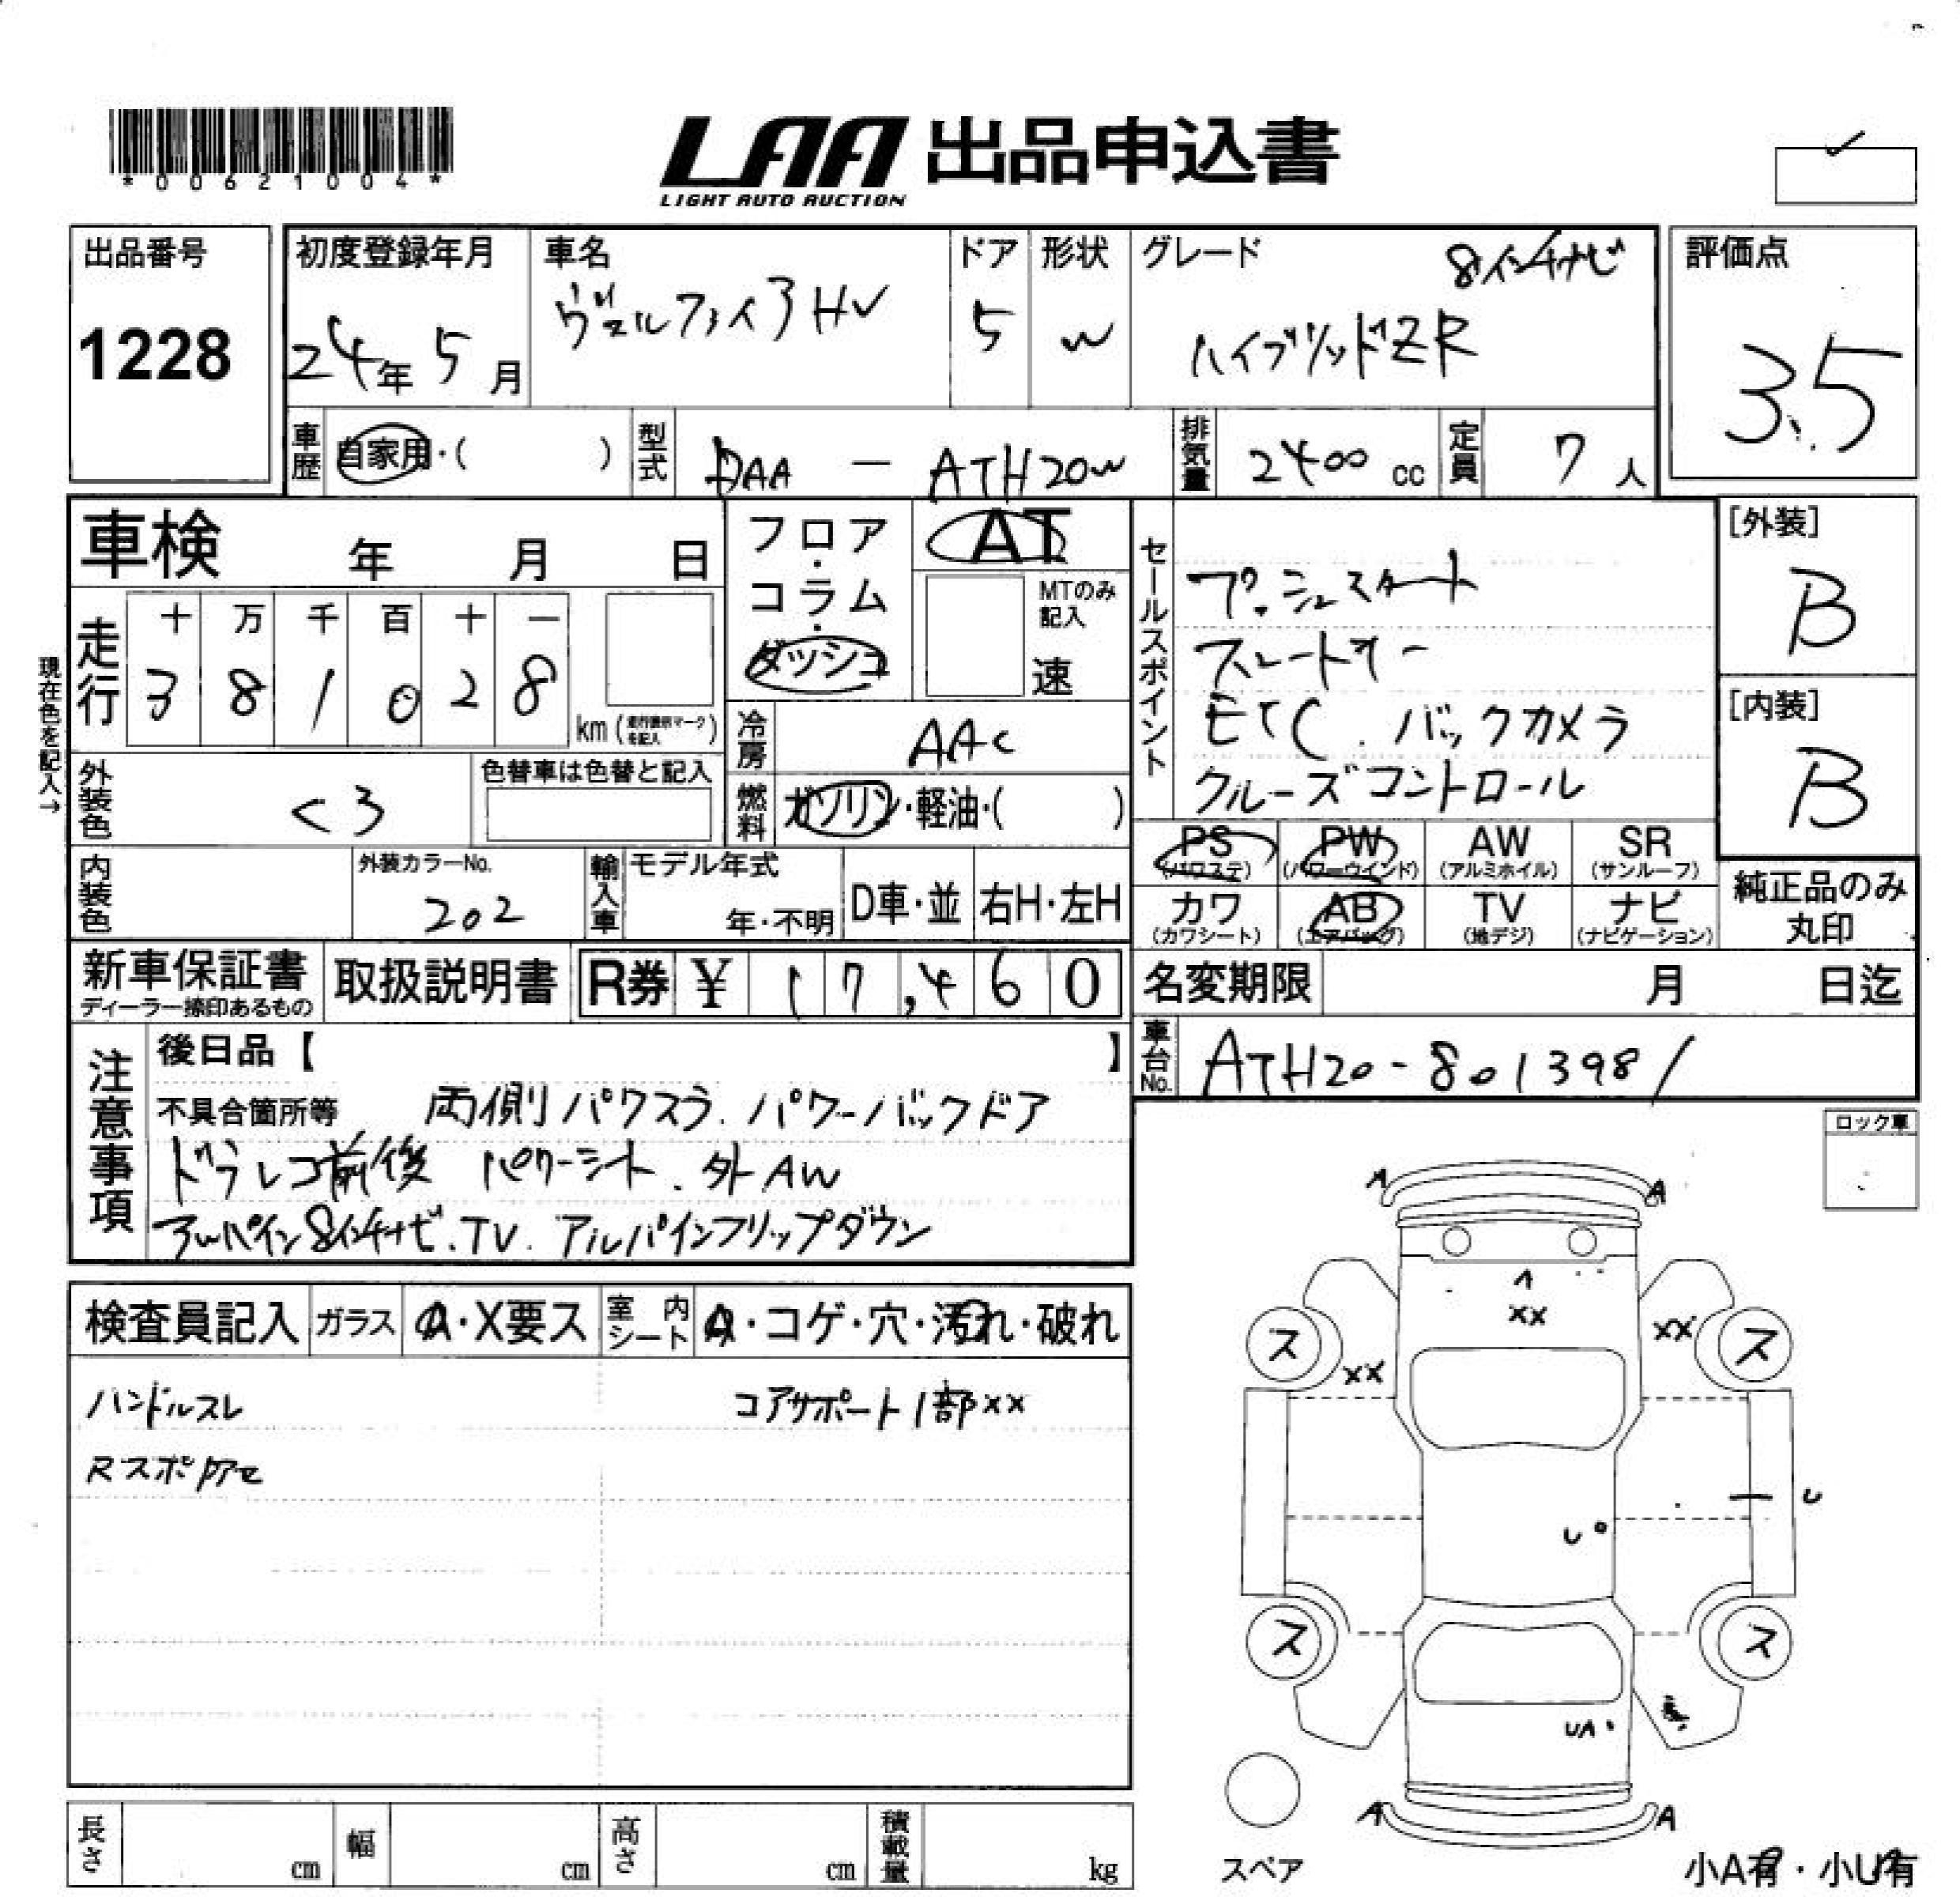 *00621004*
LAA 出品申込書
LIGHT AUTO AUCTION
出品番号
1228
初度登録年月
24年 5月
車名
ヴェルファイアHV
ドア
5
形状
W
グレード
8インチナビ
ハイブリッドZR
評価点
3.5
車歴
自家用・( )
型式
DAA - ATH20W
排気量
2400 cc
定員
7 人
車検 年 月 日
フロア・コラム・ダッシュ
AT
MTのみ記入
速
現在色を記入→
走行
十 万 千 百 十 一
3 8 1 0 2 8
km (走行管理マークを記入)
冷房
AAC
外装色
クロ
色替車は色替と記入
燃料
ガソリン・軽油・( )
セールスポイント
プッシュスタート
スマートキー
ETC. バックカメラ
クルーズコントロール
[外装]
B
[内装]
B
PS
(パワステ)
PW
(パワーウインド)
AW
(アルミホイル)
SR
(サンルーフ)
カワ
(カワシート)
AB
(エアバッグ)
TV
(地デジ)
ナビ
(ナビゲーション)
純正品のみ
丸印
内装色
外装カラーNo.
202
輸入車
モデル年式
年・不明
D車・並
右H・左H
新車保証書
ディーラー捺印あるもの
取扱説明書
R券 ¥ 17,460
名変期限 月 日迄
車台No.
ATH20-8013981
注意事項
後日品【 】
不具合箇所等 両側パワスラ. パワーバックドア
ドラレコ前後 パワーシート. 外AW
アルパイン8インチナビ. TV. アルパインフリップダウン
ロック車
検査員記入
ガラス
A・X要ス
室内シート
A・コゲ・穴・汚れ・破れ
ハンドルスレ
コアサポート1部××
A A
A
XX
XX
XX
ス ス
U
U
ス ス
UA
A A
スペア
小A有・小U有
長さ cm
幅 cm
高さ cm
積載量 kg